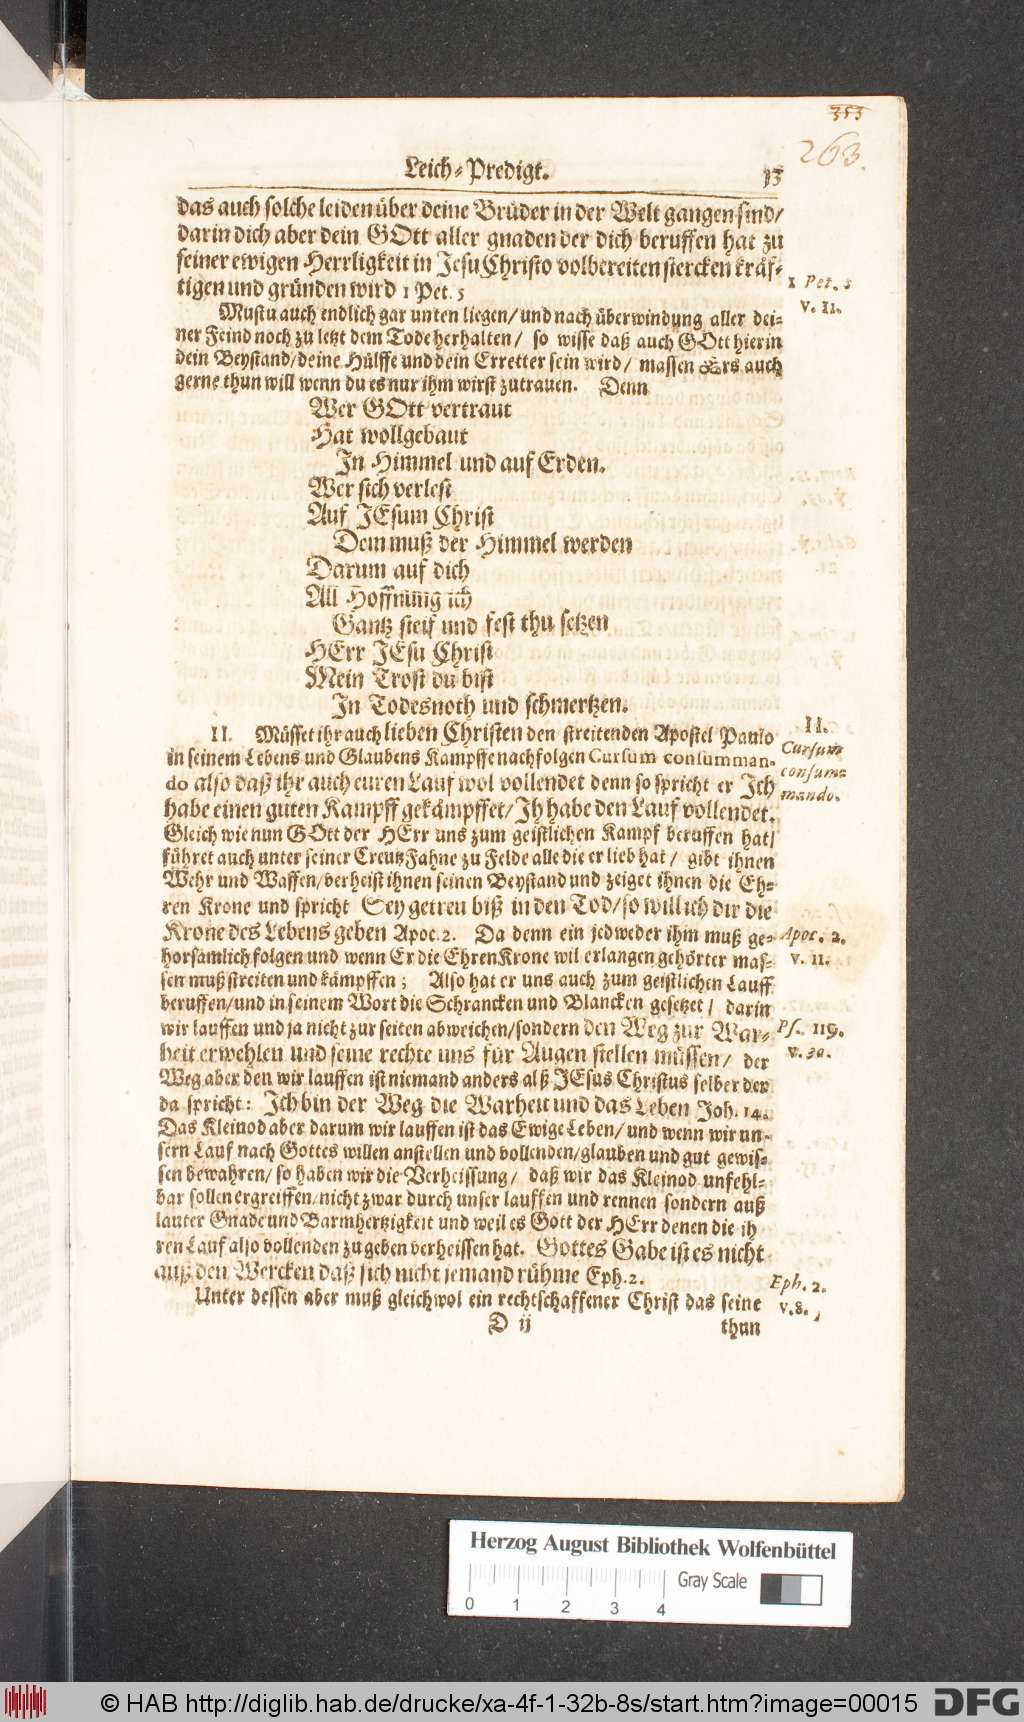 353
263.
Leich-Predigt. 13
das auch solche leiden über deine Brüder in der Welt gangen sind/
darin dich aber dein GOtt aller gnaden der dich beruffen hat zu
seiner ewigen Herrligkeit in Jesu Christo volbereiten stercken kräf-
tigen und gründen wird 1 Pet. 5
1 Pet. 5
v. 11.
Mustu auch endlich gar unten liegen/ und nach überwindung aller dei-
ner Feind noch zu letzt dem Tode herhalten/ so wisse daß auch GOtt hierin
dein Beystand/ deine Hülffe und dein Erretter sein wird/ massen Ers auch
gerne thun will wenn du es nur ihm wirst zutrauen. Denn
Wer GOtt vertraut
Hat wollgebaut
In Himmel und auf Erden.
Wer sich verlest
Auf JEsum Christ
Dem muß der Himmel werden
Darum auf dich
All Hoffnung ich
Gantz steif und fest thu setzen
HErr JEsu Christ
Mein Trost du bist
In Todesnoth und schmertzen.
II. Müsset ihr auch lieben Christen den streitenden Apostel Paulo
in seinem Lebens und Glaubens Kampffe nachfolgen Cursum consumman-
do also daß ihr auch euren Lauf wol vollendet denn so spricht er Jch
habe einen guten Kampff gekämpffet/ Jh habe den Lauf vollendet.
II.
Cursum
consum-
mando.
Gleich wie nun GOtt der HErr uns zum geistlichen Kampf beruffen hat/
führet auch unter seiner Creutz Fahne zu Felde alle die er lieb hat/ gibt ihnen
Wehr und Waffen/ verheist ihnen seinen Beystand und zeiget ihnen die Eh-
ren Krone und spricht Sey getreu biß in den Tod/ so will ich dir die
Krone des Lebens geben Apoc. 2. Da denn ein jedweder ihm muß ge-
Apoc. 2.
v. 11.
horsamlich folgen und wenn Er die EhrenKrone wil erlangen gehörter mas-
sen muß streiten und kämpffen; Also hat er uns auch zum geistlichen Lauff
beruffen/ und in seinem Wort die Schrancken und Blancken gesetzet/ darin
wir lauffen und ja nicht zur seiten abweichen/ sondern den Weg zur War-
Ps. 119.
v. 30.
heit erwehlen und seine rechte uns für Augen stellen müssen/ der
Weg aber den wir lauffen ist niemand anders alß JEsus Christus selber der
da spricht: Jch bin der Weg die Warheit und das Leben Joh. 14.
Das Kleinod aber darum wir lauffen ist das Ewige Leben/ und wenn wir un-
sern Lauf nach Gottes willen anstellen und vollenden/ glauben und gut gewis-
sen bewahren/ so haben wir die Verheissung/ daß wir das Kleinod unfehl-
bar sollen ergreiffen/ nicht zwar durch unser lauffen und rennen sondern auß
lauter Gnade und Barmhertzigkeit und weil es Gott der HErr denen die ih
ren Lauf also vollenden zu geben verheissen hat. Gottes Gabe ist es nicht
auß den Wercken daß sich nicht jemand rühme Eph. 2.
Eph. 2.
v. 8.
Unter dessen aber muß gleichwol ein rechtschaffener Christ das seine
D ij thun
Herzog August Bibliothek Wolfenbüttel
0 1 2 3 4
Gray Scale
© HAB http://diglib.hab.de/drucke/xa-4f-1-32b-8s/start.htm?image=00015
DFG